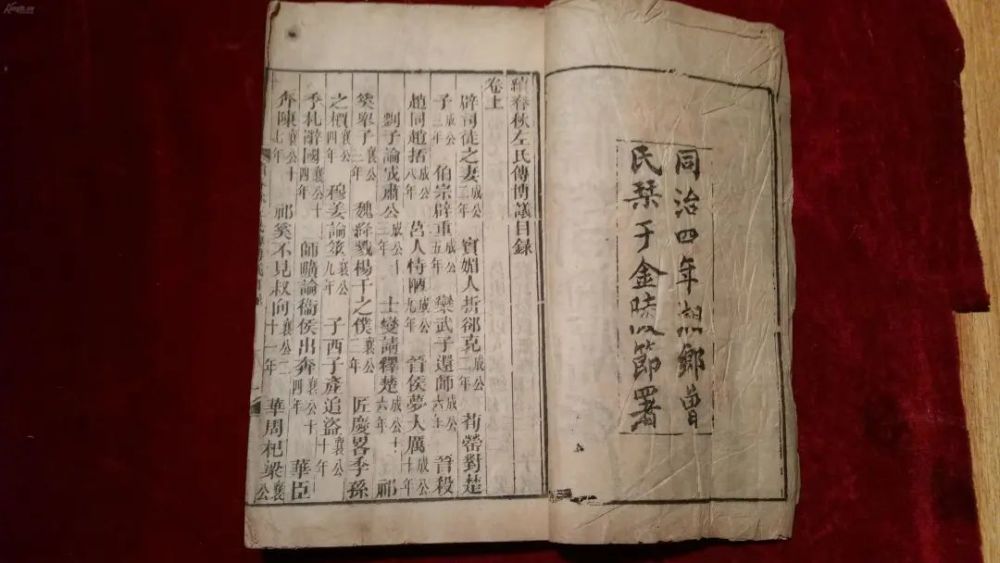 同治四年湘鄉曾
氏栞于金陵節署
續春秋左氏傳博議目錄
卷上
辟司徒之妻成公二年 賓媚人折郤克成公二年 荀罃對楚
子成公三年 伯宗辟重成公五年 欒武子還師成公六年 晉殺
趙同趙括成公八年 莒人恃陋成公九年 晉侯夢大厲成公十年
劉子論成肅公成公十三年 士燮請釋楚成公十六年 祁
奚舉子襄公三年 魏絳戮楊干之僕襄公三年 匠慶畧季孫
之檟襄公四年 穆姜論筮襄公九年 子西子產追盜襄公十年
季札辭國襄公十四年 師曠論衞侯出奔襄公十四年 華臣
奔陳襄公十七年 祁奚不見叔向襄公二十一年 華周杞梁襄公